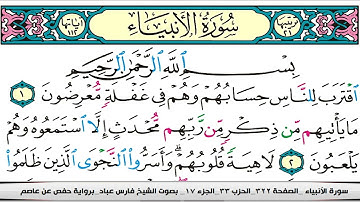 ترتيبها ٢١ سورة الأنبياء آياتها ١١٢
بِسْمِ اللَّهِ الرَّحْمَٰنِ الرَّحِيمِ
ٱقْتَرَبَ لِلنَّاسِ حِسَابُهُمْ وَهُمْ فِي غَفْلَةٍ مُّعْرِضُونَ ١
مَا يَأْتِيهِم مِّن ذِكْرٍ مِّن رَّبِّهِم مُّحْدَثٍ إِلَّا ٱسْتَمَعُوهُ وَهُمْ
يَلْعَبُونَ ٢ لَاهِيَةً قُلُوبُهُمْ وَأَسَرُّوا۟ ٱلنَّجْوَى ٱلَّذِينَ ظَلَمُوا۟
سورة الأنبياء _ الصفحة ٣٢٢ _ الحزب ٣٣ _ الجزء ١٧ _ بصوت الشيخ فارس عباد _ برواية حفص عن عاصم